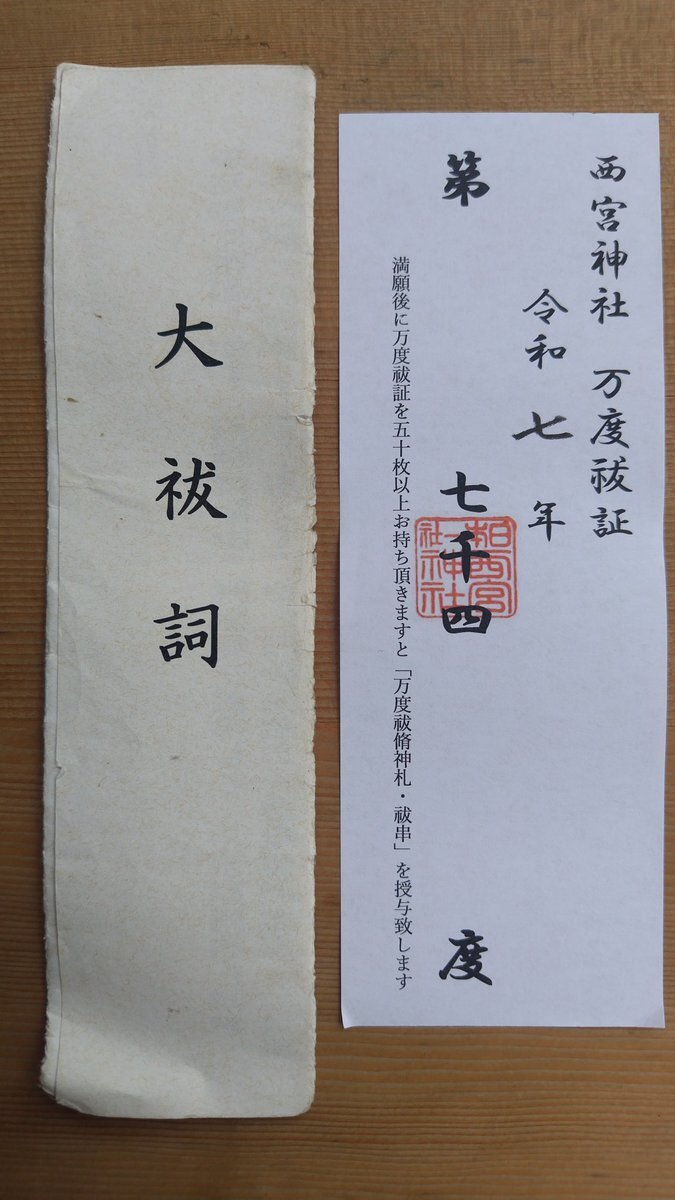 大祓詞
西宮神社 万度祓証
令和七年
第七千四度
満願後に万度祓証を五十枚以上お持ち頂きますと「万度祓脩神札・祓串」を授与致します